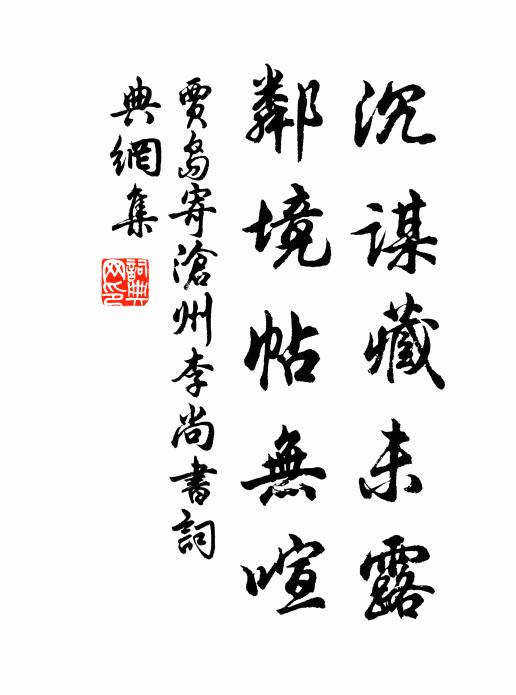 沉謀藏未露
鄰境帖無喧
賈島寄滄州李尚書詞
典網集
詞典
网印